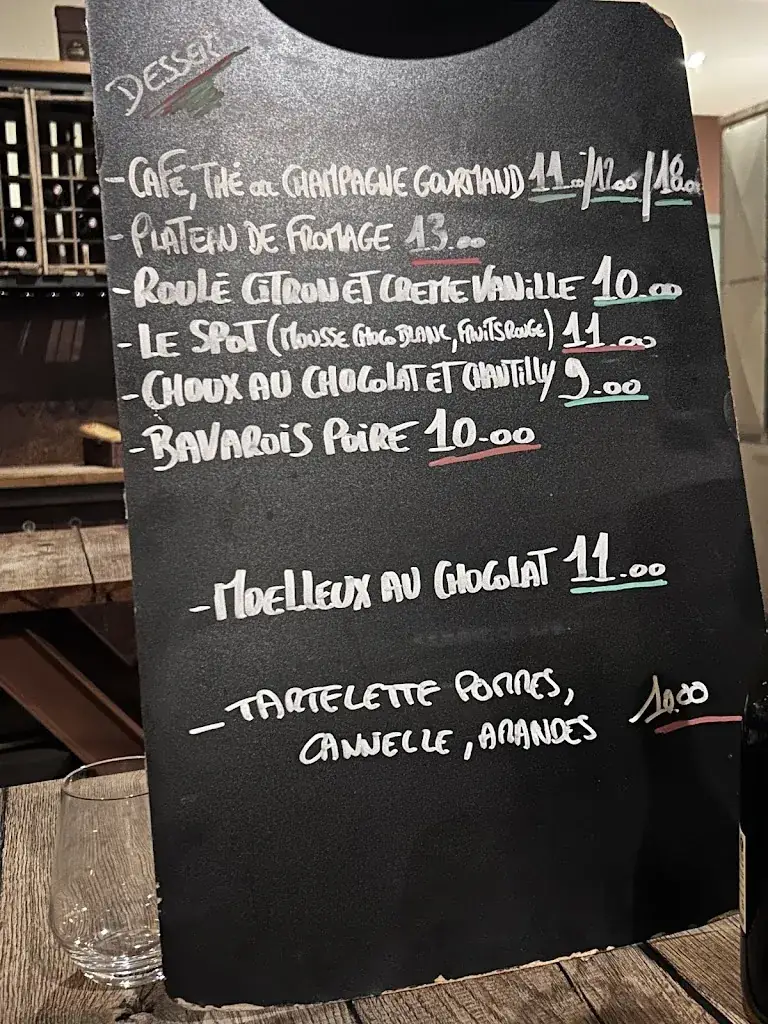 DESSERT
- CAFÉ, THÉ ou CHAMPAGNE GOURMAND 11.00/12.00/18.00
- PLATEAU DE FROMAGE 13.00
- ROULÉ CITRON ET CREME VANILLE 10.00
- LE SPOT (MOUSSE CHOCO BLANC, FRUITS ROUGE) 11.00
- CHOUX AU CHOCOLAT ET CHANTILLY 9.00
- BAVAROIS POIRE 10.00
- MOELLEUX AU CHOCOLAT 11.00
- TARTELETTE POMMES, 10.00
CANNELLE, AMANDES